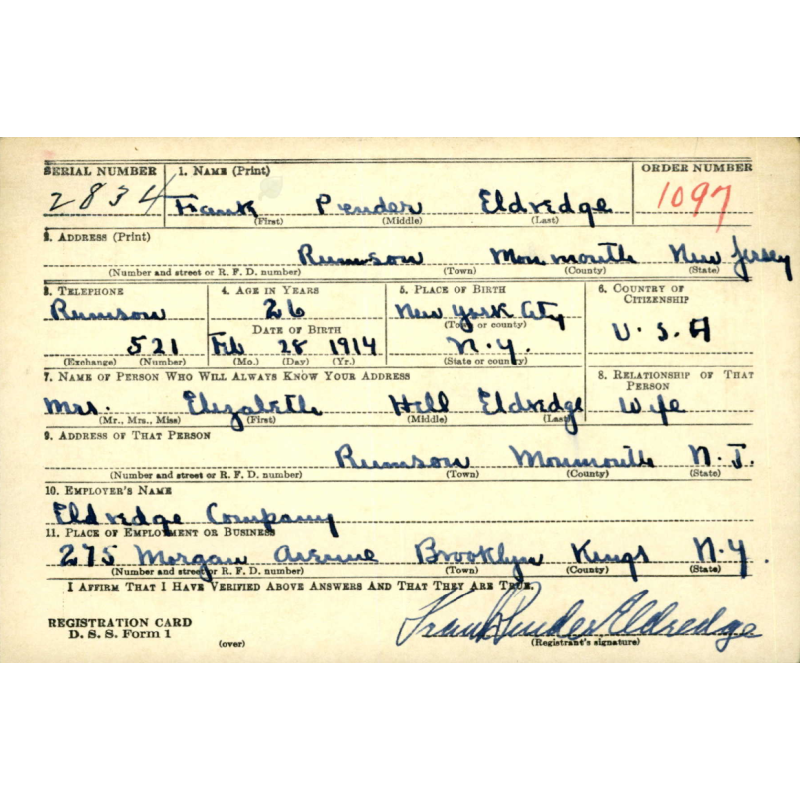 SERIAL NUMBER 1. NAME (Print) ORDER NUMBER
2834 Frank Pender Eldredge 1097
(First) (Middle) (Last)
2. ADDRESS (Print)
Rumson Monmouth New Jersey
(Number and street or R. F. D. number) (Town) (County) (State)
3. TELEPHONE 4. AGE IN YEARS 5. PLACE OF BIRTH 6. COUNTRY OF CITIZENSHIP
Rumson 26 New York City
(Town or county)
DATE OF BIRTH U.S.A
521 Feb 28 1914 N.Y.
(Exchange) (Number) (Mo.) (Day) (Yr.) (State or country)
7. NAME OF PERSON WHO WILL ALWAYS KNOW YOUR ADDRESS 8. RELATIONSHIP OF THAT PERSON
Mrs. Elizabeth Hill Eldredge Wife
(Mr., Mrs., Miss) (First) (Middle) (Last)
9. ADDRESS OF THAT PERSON
Rumson Monmouth N.J.
(Number and street or R. F. D. number) (Town) (County) (State)
10. EMPLOYER'S NAME
Eldredge Company
11. PLACE OF EMPLOYMENT OR BUSINESS
275 Morgan Avenue Brooklyn Kings N.Y.
(Number and street or R. F. D. number) (Town) (County) (State)
I AFFIRM THAT I HAVE VERIFIED ABOVE ANSWERS AND THAT THEY ARE TRUE.
REGISTRATION CARD Frank Pender Eldredge
D. S. S. Form 1 (over) (Registrant's signature)